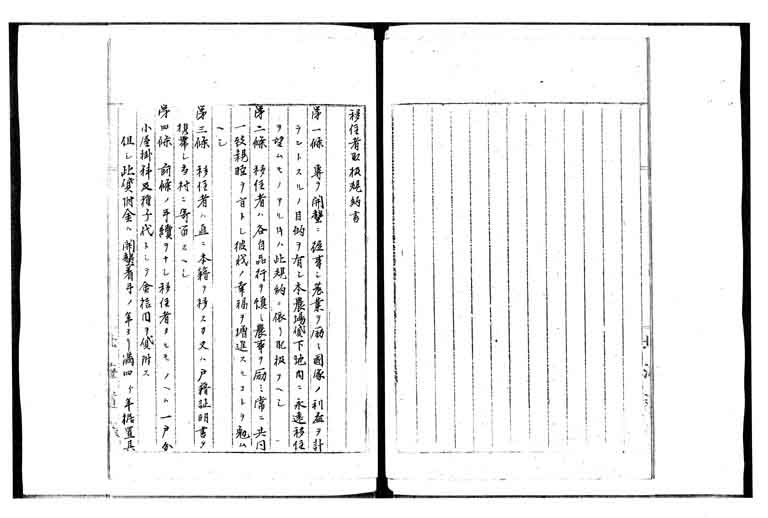 移住者取扱規約書
第一條　専ラ開墾ニ從事シ農業ヲ励ミ國家ノ利益ヲ計
ラントスルノ目的ヲ有シ本農場貸下地内ニ永遠移住
ヲ望ムモノアル片ハ此規約ニ依リ取扱フヘシ
第二條　移住者ハ各自品行ヲ慎ミ農事ヲ励ミ常ニ共同
一致親睦ヲ旨トシ彼我ノ幸福ヲ増進スルコトヲ勉ム
ヘシ
第三條　移住者ハ直ニ本籍ヲ移スカ又ハ戸籍証明書ヲ
携帯シ當村ニ寄留スヘシ
第四條　前條ノ手續ヲナシ移住者タルモノヘハ一戸分
小屋掛料及種子代トシテ金拾円ヲ貸附ス
但シ此貸附金ハ開墾着手ノ年ヨリ満四ヶ年据置其